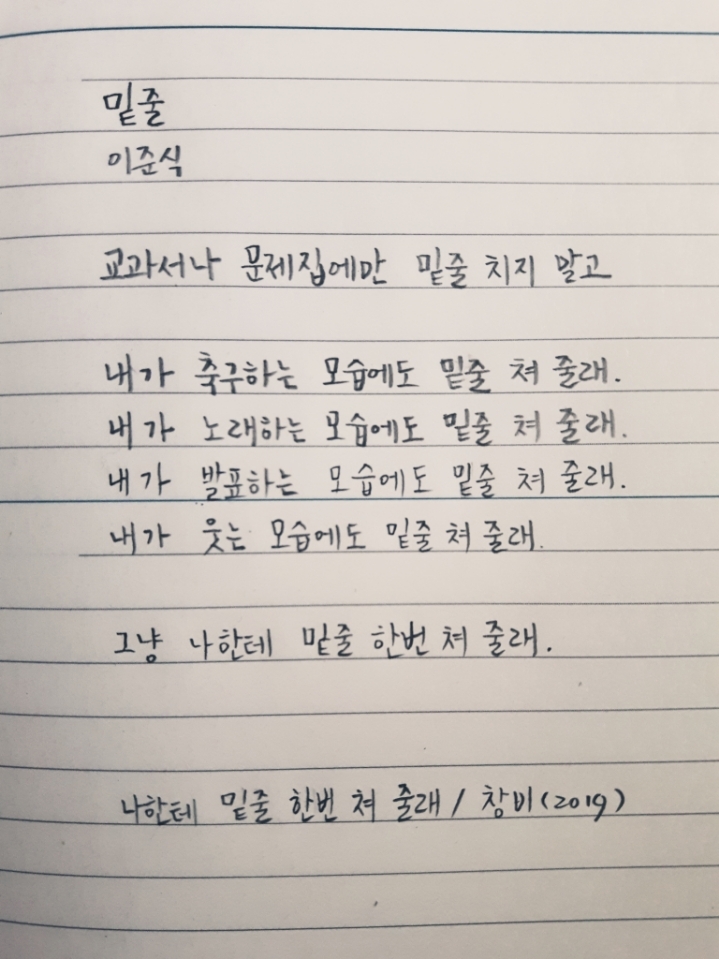 밑줄
이준식
교과서나 문제집에만 밑줄 치지 말고
내가 축구하는 모습에도 밑줄 쳐 줄래.
내가 노래하는 모습에도 밑줄 쳐 줄래.
내가 발표하는 모습에도 밑줄 쳐 줄래.
내가 웃는 모습에도 밑줄 쳐 줄래.
그냥 나한테 밑줄 한번 쳐 줄래.
나한테 밑줄 한번 쳐 줄래 / 창비 (2019)